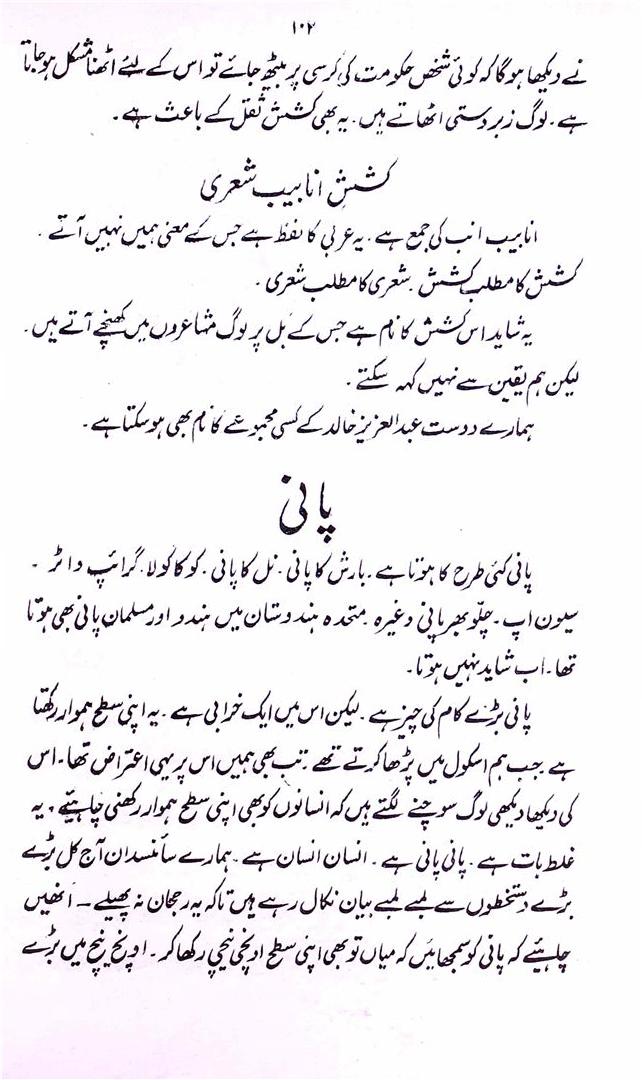 ۱۰۲
نے دیکھا ہوگا کہ کوئی شخص حکومت کی کرسی پر بیٹھ جائے تو اس کے لیئے اٹھنا مشکل ہو جاتا
ہے۔ لوگ زبردستی اٹھاتے ہیں۔ یہ بھی کششِ ثقل کے باعث ہے۔
کششِ انابیب شعری
انابیب انب کی جمع ہے۔ یہ عربی کا لفظ ہے جس کے معنی ہمیں نہیں آتے۔
کشش کا مطلب کشش۔ شعری کا مطلب شعری۔
یہ شاید اس کشش کا نام ہے جس کے بل پر لوگ مشاعروں میں کھنچے آتے ہیں۔
لیکن ہم یقین سے نہیں کہہ سکتے۔
ہمارے دوست عبدالعزیز خالد کے کسی مجموعے کا نام بھی ہو سکتا ہے۔
پانی
پانی کئی طرح کا ہوتا ہے۔ بارش کا پانی۔ نل کا پانی۔ کوکا کولا۔ گرائپ واٹر۔
سیون اپ۔ چلّو بھر پانی وغیرہ۔ متحدہ ہندوستان میں ہندو اور مسلمان پانی بھی ہوتا
تھا۔ اب شاید نہیں ہوتا۔
پانی بڑے کام کی چیز ہے۔ لیکن اس میں ایک خرابی ہے۔ یہ اپنی سطح ہموار رکھتا
ہے جب ہم اسکول میں پڑھا کرتے تھے۔ تب بھی ہمیں اس پر یہی اعتراض تھا۔ اس
کی دیکھا دیکھی لوگ سوچنے لگتے ہیں کہ انسانوں کو بھی اپنی سطح ہموار رکھنی چاہیئے، یہ
غلط بات ہے۔ پانی پانی ہے۔ انسان انسان ہے۔ ہمارے سائنسدان آج کل بڑے
بڑے دستخطوں سے لمبے لمبے بیان نکال رہے ہیں تاکہ یہ رجحان نہ پھیلے۔ انھیں
چاہیئے کہ پانی کو سمجھائیں کہ میاں تو بھی اپنی سطح اونچی نیچی رکھا کر۔ اونچ نیچ میں بڑے